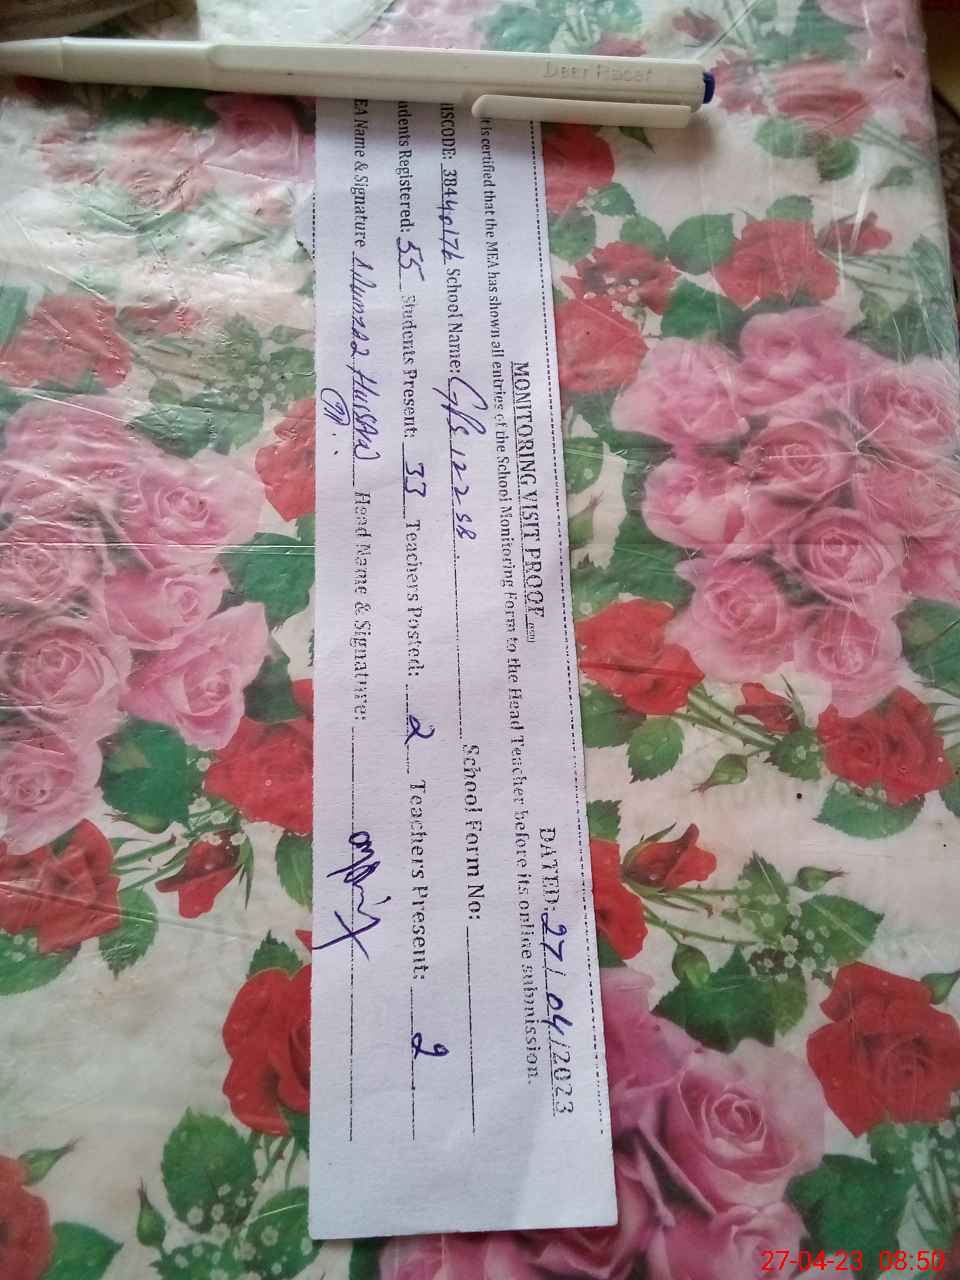 Deer Racer
MONITORING VISIT PROOF DATED: 27/04/2023
t is certified that the MEA has shown all entries of the School Monitoring Form to the Head Teacher before its online submission.
ISCODE: School Name: G/s 122 SB School Form No:
udents Registered: 55 Students Present: 33 Teachers Posted: 2 Teachers Present: 2
EA Name & Signature Hussain Head Name & Signature:
27-04-23 08:50